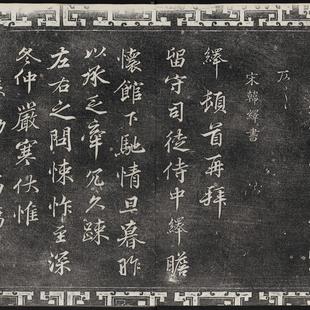 宋韓絳書
絳頓首再拜
留守司徒侍中絳瞻
懷館下馳情旦暮昨
以承乏牽冗久踈
左右之問悚怍至深
冬仲嚴寒伏惟